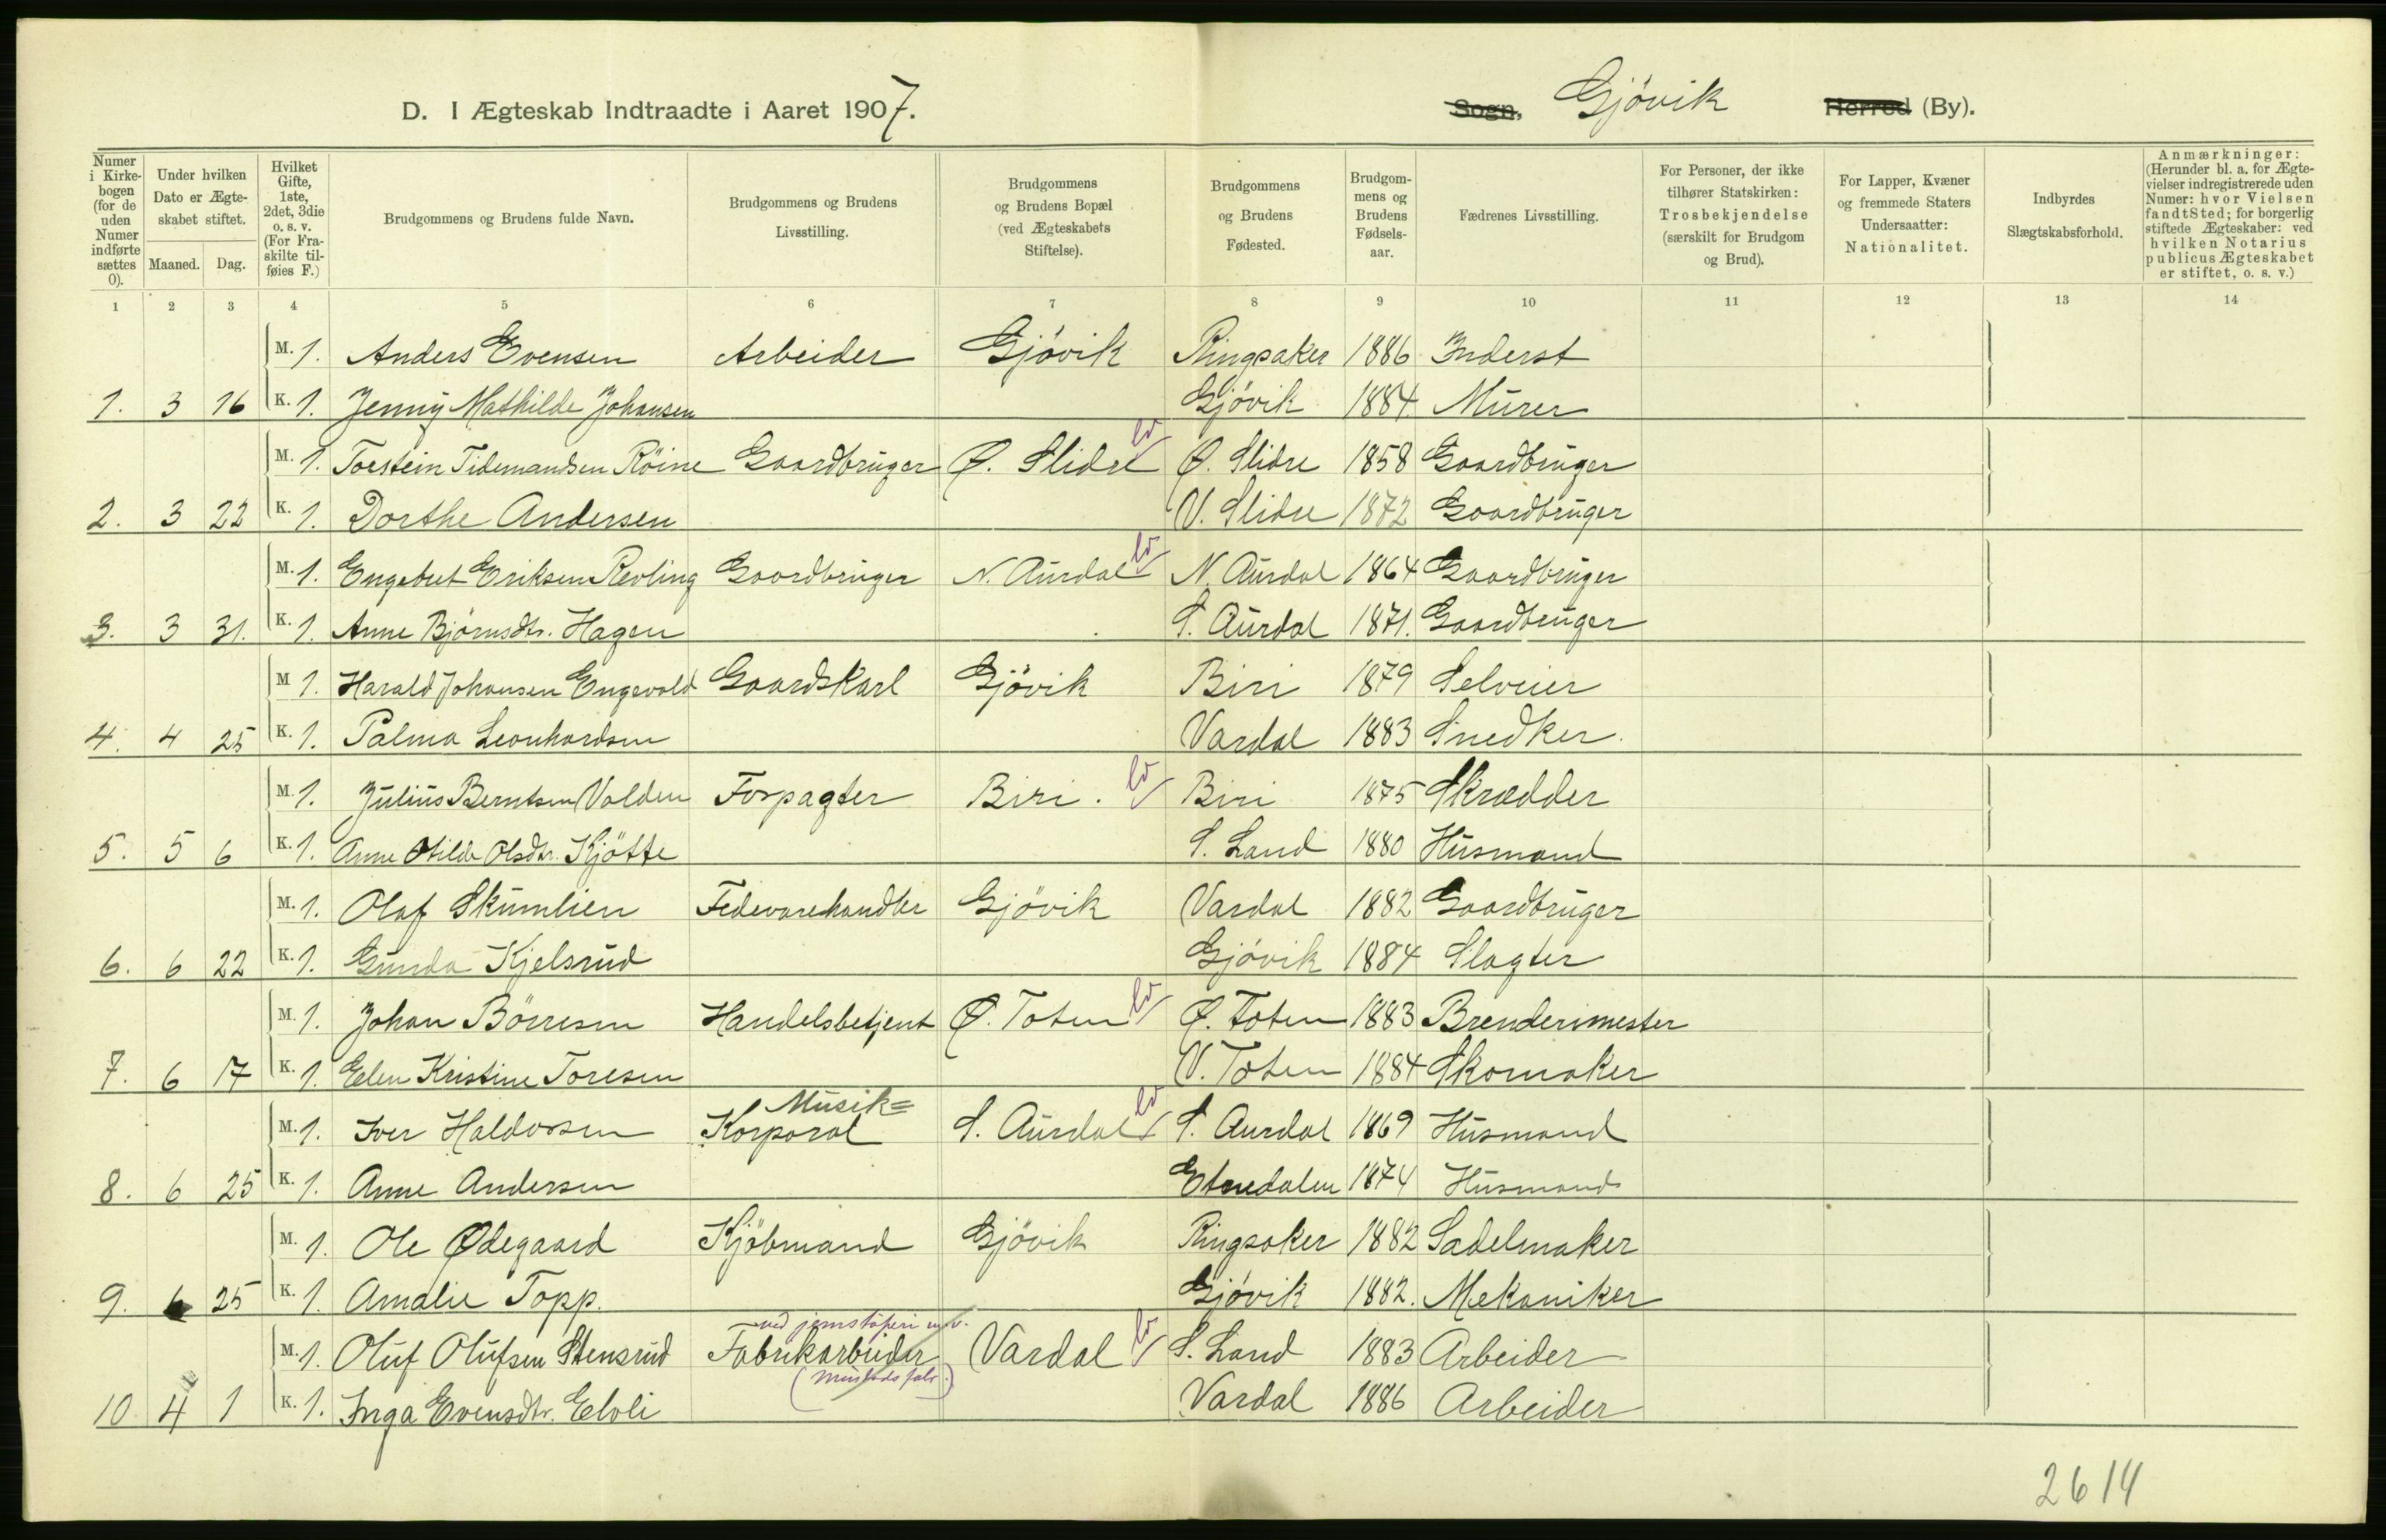 D. I Ægteskab Indtraadte i Aaret 1907.
Sogn, Gjövik Herred (By).
Numer i Kirkebogen (for de uden Numer indførte sættes 0).
Under hvilken Dato er Ægteskabet stiftet.
Maaned. Dag.
Hvilket Gifte, 1ste, 2det, 3die o. s. v. (For Fraskilte tilføies F.)
Brudgommens og Brudens fulde Navn.
Brudgommens og Brudens Livsstilling.
Brudgommens og Brudens Bopæl (ved Ægteskabets Stiftelse).
Brudgommens og Brudens Fødested.
Brudgommens og Brudens Fødselsaar.
Fædrenes Livsstilling.
For Personer, der ikke tilhører Statskirken: Trosbekjendelse (særskilt for Brudgom og Brud).
For Lapper, Kvæner og fremmede Staters Undersaatter: Nationalitet.
Indbyrdes Slægtskabsforhold.
Anmærkninger: (Herunder bl. a. for Ægtevielser indregistrerede uden Numer: hvor Vielsen fandt Sted; for borgerlig stiftede Ægteskaber: ved hvilken Notarius publicus Ægteskabet er stiftet, o. s. v.)
1 2 3 4 5 6 7 8 9 10 11 12 13 14
M. 1. Anders Evensen Arbeider Gjövik Ringsaker 1886 Inderst
1. 3 16 K. 1. Jenny Mathilde Johansen Gjövik 1884 Murer
M. 1. Torstein Tidemandsen Röine Gaardbruger Ø. Slidre Ø. Slidre 1858 Gaardbruger
2. 3 22 K. 1. Dorthe Andersen V. Slidre 1872 Gaardbruger
M. 1. Engebret Eriksen Revling Gaardbruger N. Aurdal N. Aurdal 1864 Gaardbruger
3. 3 31. K. 1. Anne Björnsdtr. Hagen S. Aurdal 1871. Gaardbruger
M 1. Harald Johansen Engevold Gaardskarl Gjövik Biri 1879 Selveier
4. 4 25 K. 1. Palma Leonhardsen Vardal 1883 Snedker.
M. 1. Julius Berntsen Volden Forpagter Biri. Biri 1875 Skrædder
5. 5 6 K. 1. Anne Otilde Olsdtr. Kjötte S. Land 1880 Husmand
M. 1. Olaf Skumlien Fedevarehandler Gjövik Vardal 1882 Gaardbruger
6. 6 22 K. 1. Gunda Kjelsrud Gjövik 1884 Slagter
M. 1. Johan Börresen Handelsbetjent Ø. Toten Ø. Toten 1883 Brenderimester
7. 6 17 K. 1. Elen Kristine Toresen V. Toten 1884 Skomaker
Musik=
M. 1. Iver Haldorsen Korporal S. Aurdal S. Aurdal 1869 Husmand
8. 6 25 K. 1. Anne Andersen Etnedalen 1874 Husmand
M. 1. Ole Ødegaard Kjöbmand Gjövik Ringsaker 1882 Sadelmaker
9. 6 25 K. 1. Amalie Topp. Gjövik 1882. Mekaniker
ved jernstöperi
M. 1. Oluf Olufsen Stensrud Fabrikarbeider Vardal S. Land 1883 Arbeider
10 4 1 K. 1. Inga Evensdtr. Elvli Vardal 1886 Arbeider
2614